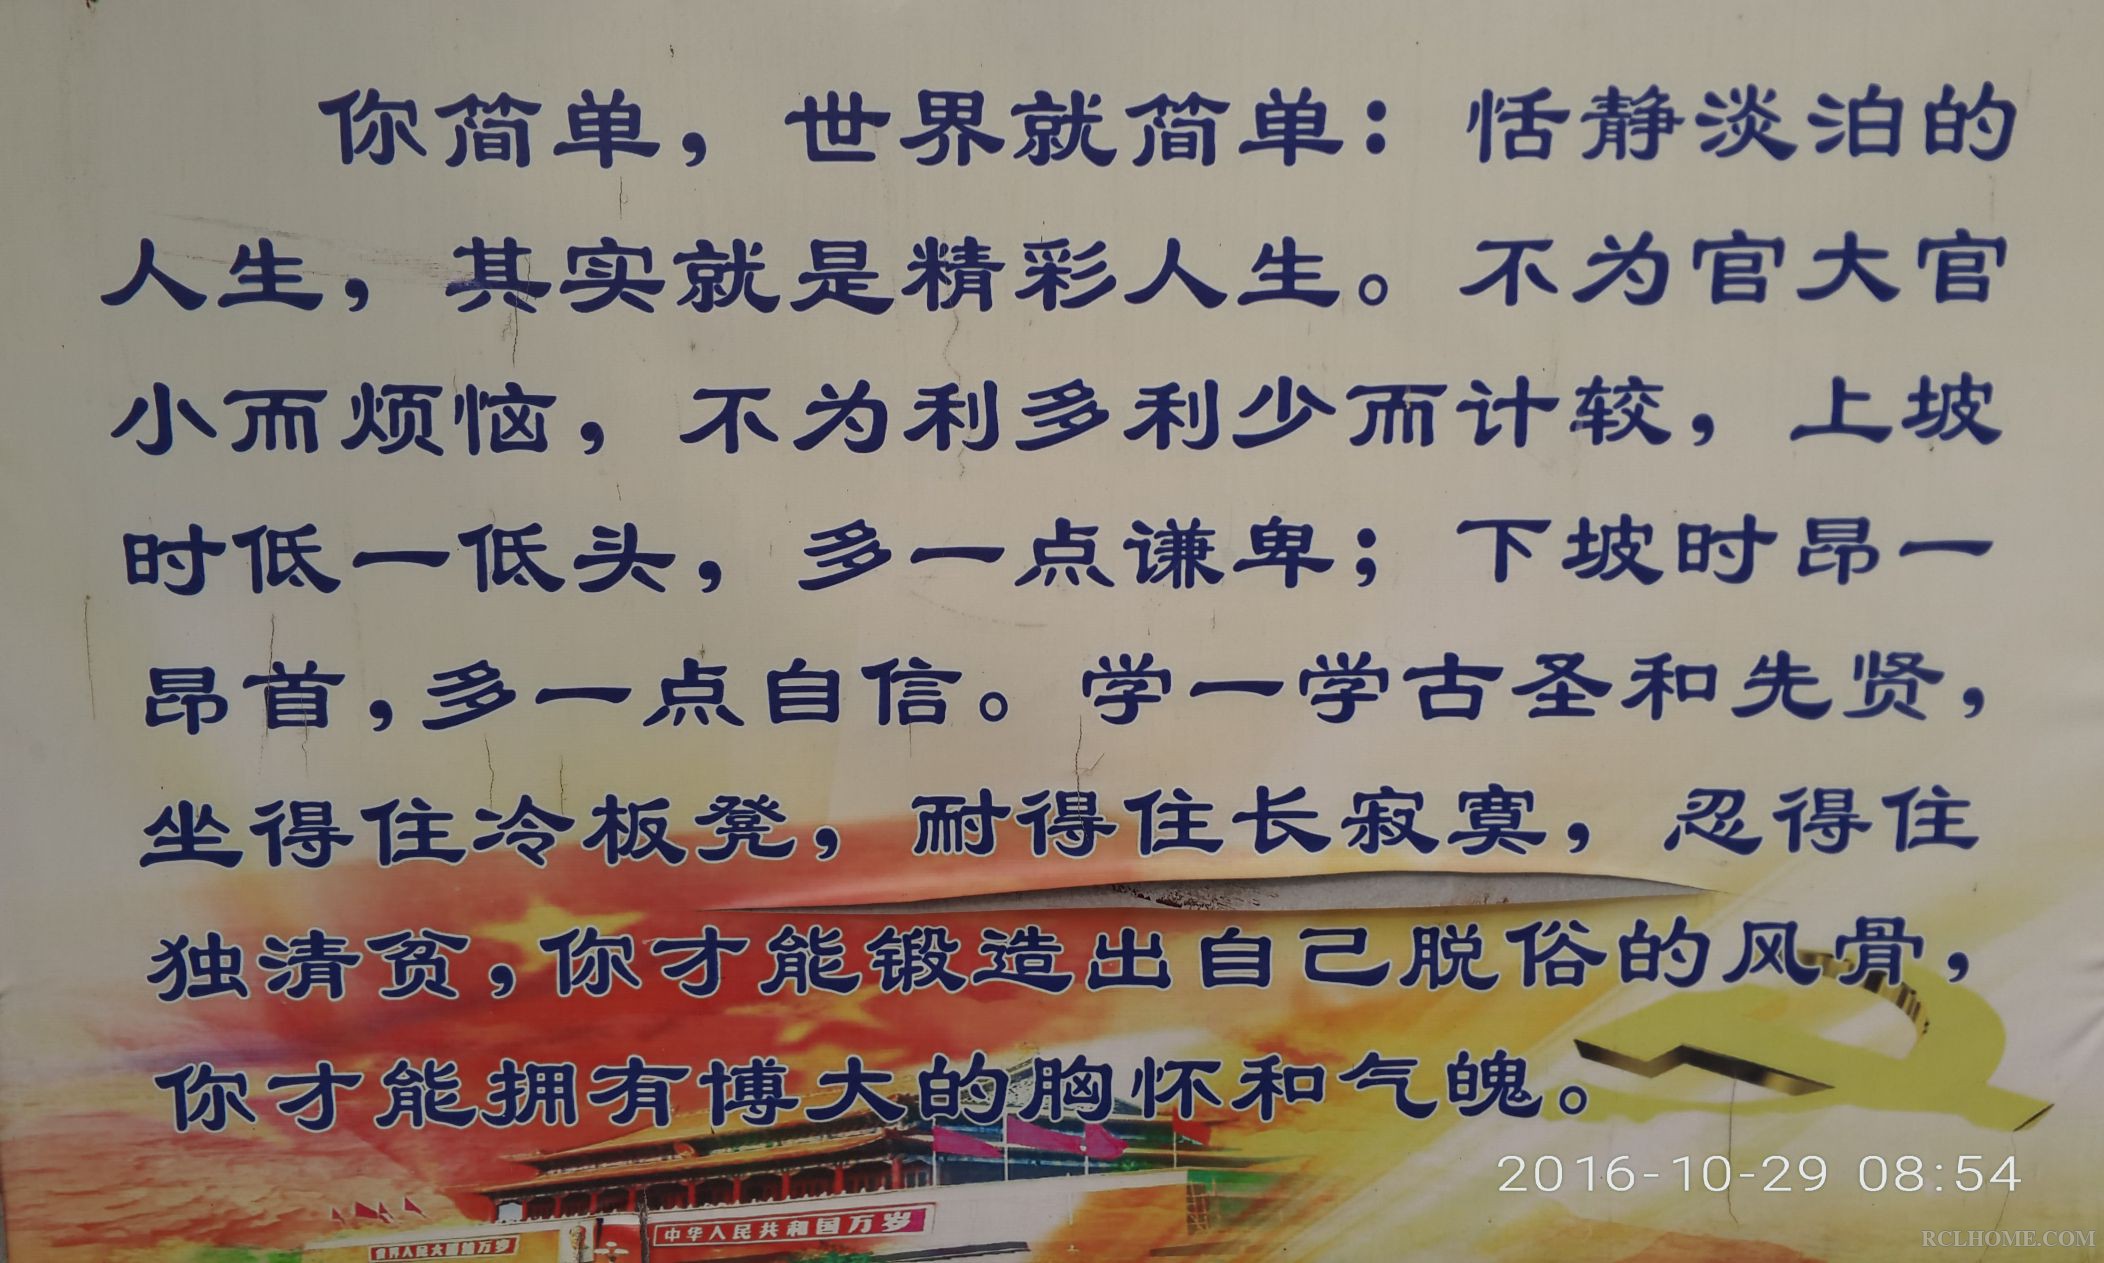 你简单，世界就简单：恬静淡泊的
人生，其实就是精彩人生。不为官大官
小而烦恼，不为利多利少而计较，上坡
时低一低头，多一点谦卑；下坡时昂一
昂首，多一点自信。学一学古圣和先贤，
坐得住冷板凳，耐得住长寂寞，忍得住
独清贫，你才能锻造出自己脱俗的风骨，
你才能拥有博大的胸怀和气魄。
2016-10-29 08:54
中华人民共和国万岁
世界人民大团结万岁
RCLHOME.COM